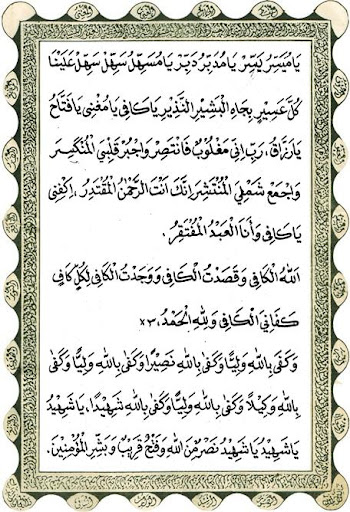 يَا مُيَسِّرُ يَسِّرْ يَا مُدَبِّرُ دَبِّرْ يَا مُسَهِّلُ سَهِّلْ سَهِّلْ عَلَيْنَا
كُلَّ عَسِيْرٍ بِجَاهِ الْبَشِيْرِ النَّذِيْرِ يَا كَافِى يَا مُغْنِى يَا فَتَّاحُ
يَا رَزَّاقُ، رَبِّ اِنِّى مَغْلُوْبٌ فَانْتَصِرْ وَاجْبُرْ قَلْبِيَ الْمُنْكَسِرَ
وَاجْمَعْ شَمْلِيَ الْمُنْتَشِرَ اِنَّكَ اَنْتَ الرَّحْمٰنُ الْمُقْتَدِرُ، اِكْفِنِى
يَا كَافِى وَأَنَا الْعَبْدُ الْمُفْتَقِرُ.
اَللهُ الْكَافِى وَقَصَدْتُ الْكَافِى وَوَجَدْتُ الْكَافِى لِكُلٍّ كَافِى
كَفَانِيَ الْكَافِى وَلِلّٰهِ الْحَمْدُ، ×٣
وَكَفَى بِاللهِ وَلِيًّا وَكَفَى بِاللهِ نَصِيْرًا وَكَفَى بِاللهِ وَلِيًّا وَكَفَى
بِاللهِ وَكِيْلًا وَكَفَى بِاللهِ وَلِيًّا وَكَفَى بِاللهِ شَهِيْدًا، يَا شَهِيْدُ
يَا شَهِيْدُ يَا شَهِيْدُ نَصْرٌ مِّنَ اللهِ وَفَتْحٌ قَرِيْبٌ وَبَشِّرِ الْمُؤْمِنِيْنَ.